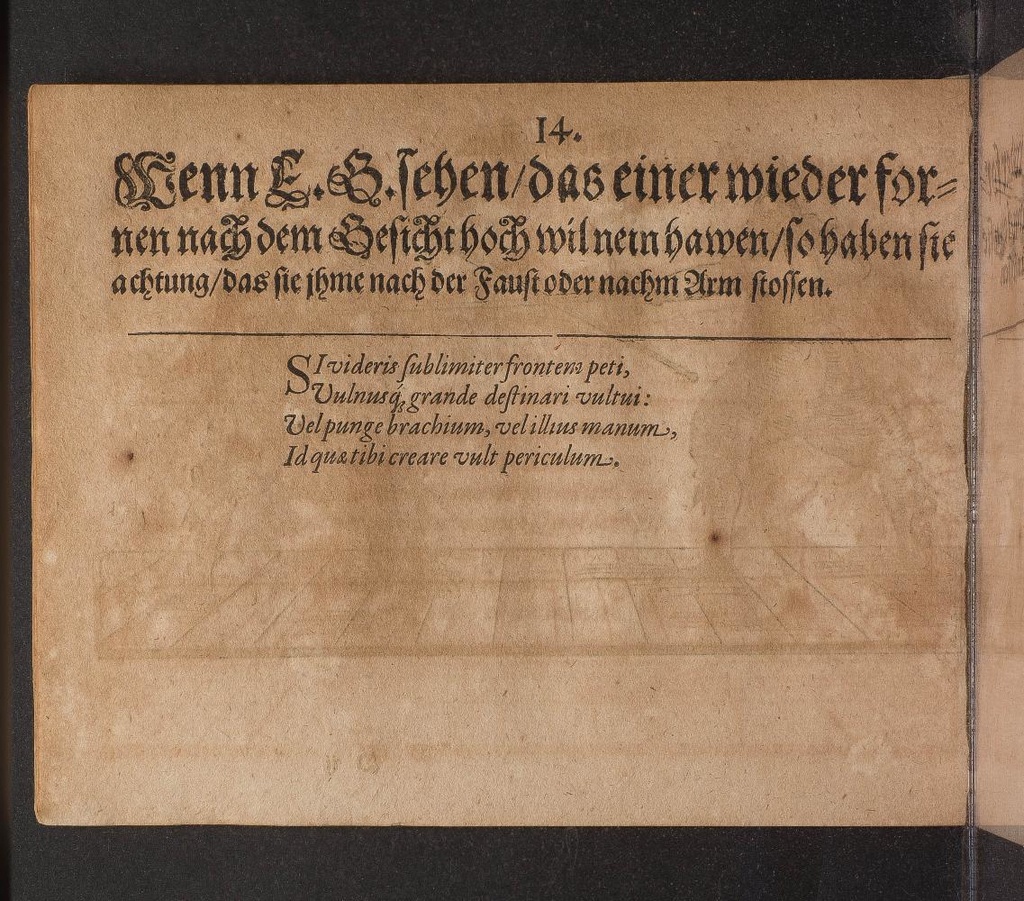 14.
Wenn E. G. sehen/das einer wieder for⸗
nen nach dem Gesicht hoch wil nein hawen/so haben sie
achtung/das sie jhme nach der Faust oder nachm Arm stossen.
SI videris ſublimiter frontem peti,
Vulnusq́; grande deſtinari vultui:
Vel punge brachium, vel illius manum,
Id quæ tibi creare vult periculum.